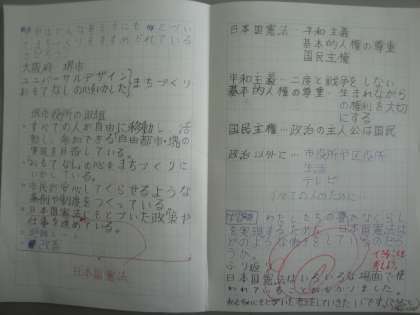 日本国憲法…平和主義
基本的人権の尊重
国民主権
平和主義…二度と戦争をしない
基本的人権の尊重…生まれながら
の権利を大切
にする
国民主権…政治の主人公は国民
政治以外に…市役所や区役所
生活
テレビ
すべての人のために
わたしたちの豊かなくらし
を実現するために、日本国憲法は
どのような働きをしているのだろ
うか。
ふり返り
日本国憲法はいろいろな場面で使
われていることがわかりました。
大阪府 堺市
ユニバーサルデザイン
おもてなしの心を生かした
まちづくり
堺市役所の取組
・すべての人が自由に移動し、活
動し、参加できる「自由都市・堺の
実現を目指している。
・おもてなしの心をまちづくりに
いかしている。
・市民が安心してくらせるような
条例や制度をつくっている。
・日本国憲法にもとづいた政策や
仕事を進めている。
日本国憲法